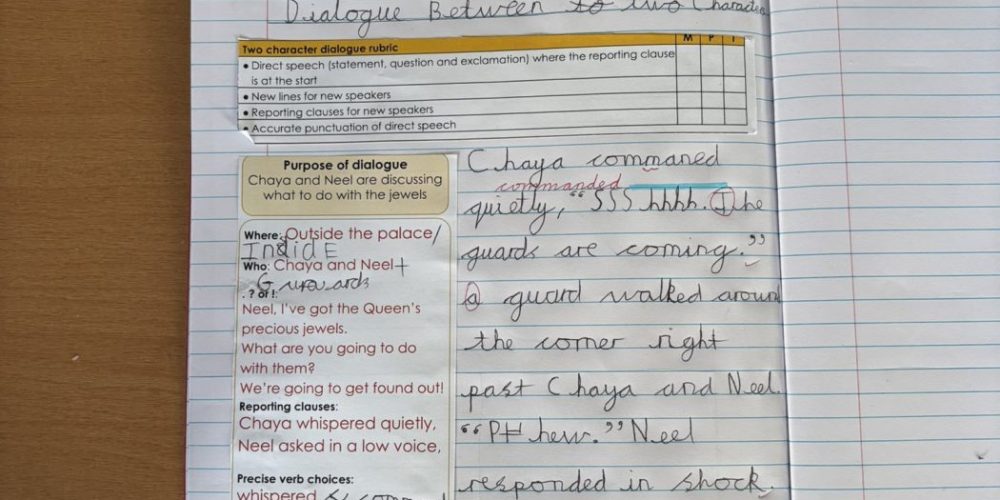 Dialogue Between to two Character
Two character dialogue rubric
M P I
• Direct speech (statement, question and exclamation) where the reporting clause
is at the start
• New lines for new speakers
• Reporting clauses for new speakers
• Accurate punctuation of direct speech
Purpose of dialogue
Chaya and Neel are discussing
what to do with the jewels
Where: Outside the palace/
InsidE
Who: Chaya and Neel+
. ? or !:
Neel, I've got the Queen's
precious jewels.
What are you going to do
with them?
We're going to get found out!
Reporting clauses:
Chaya whispered quietly,
Neel asked in a low voice,
Precise verb choices:
whispered
Chaya commaned
commanded
quietly, “SSShhhh. The
guards are coming.”
a guard walked around
the corner right
past Chaya and Neel.
“PHhew.” Neel
responded in shock.